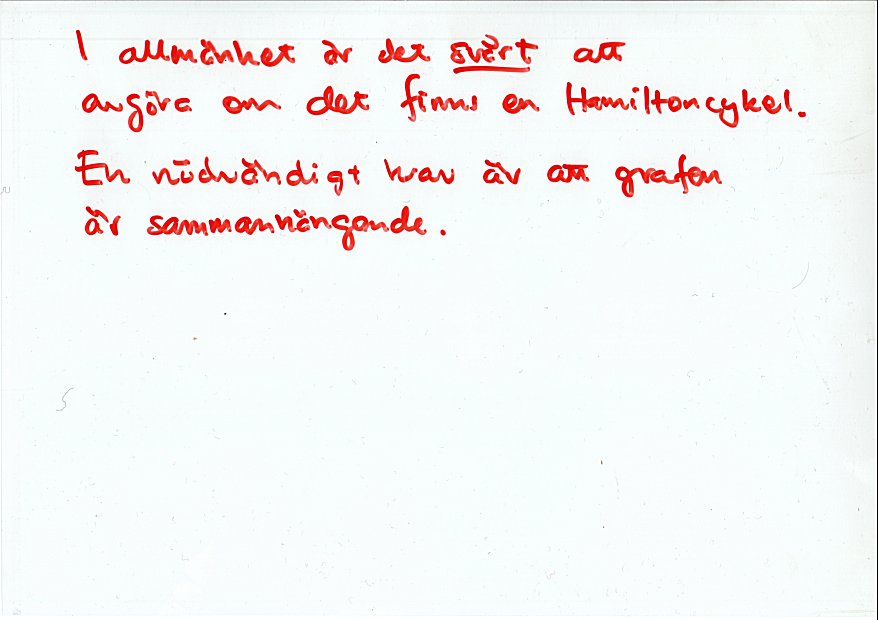 I allmänhet är det svårt att
avgöra om det finns en Hamiltoncykel.
En nödvändigt krav är att grafen
är sammanhängande.